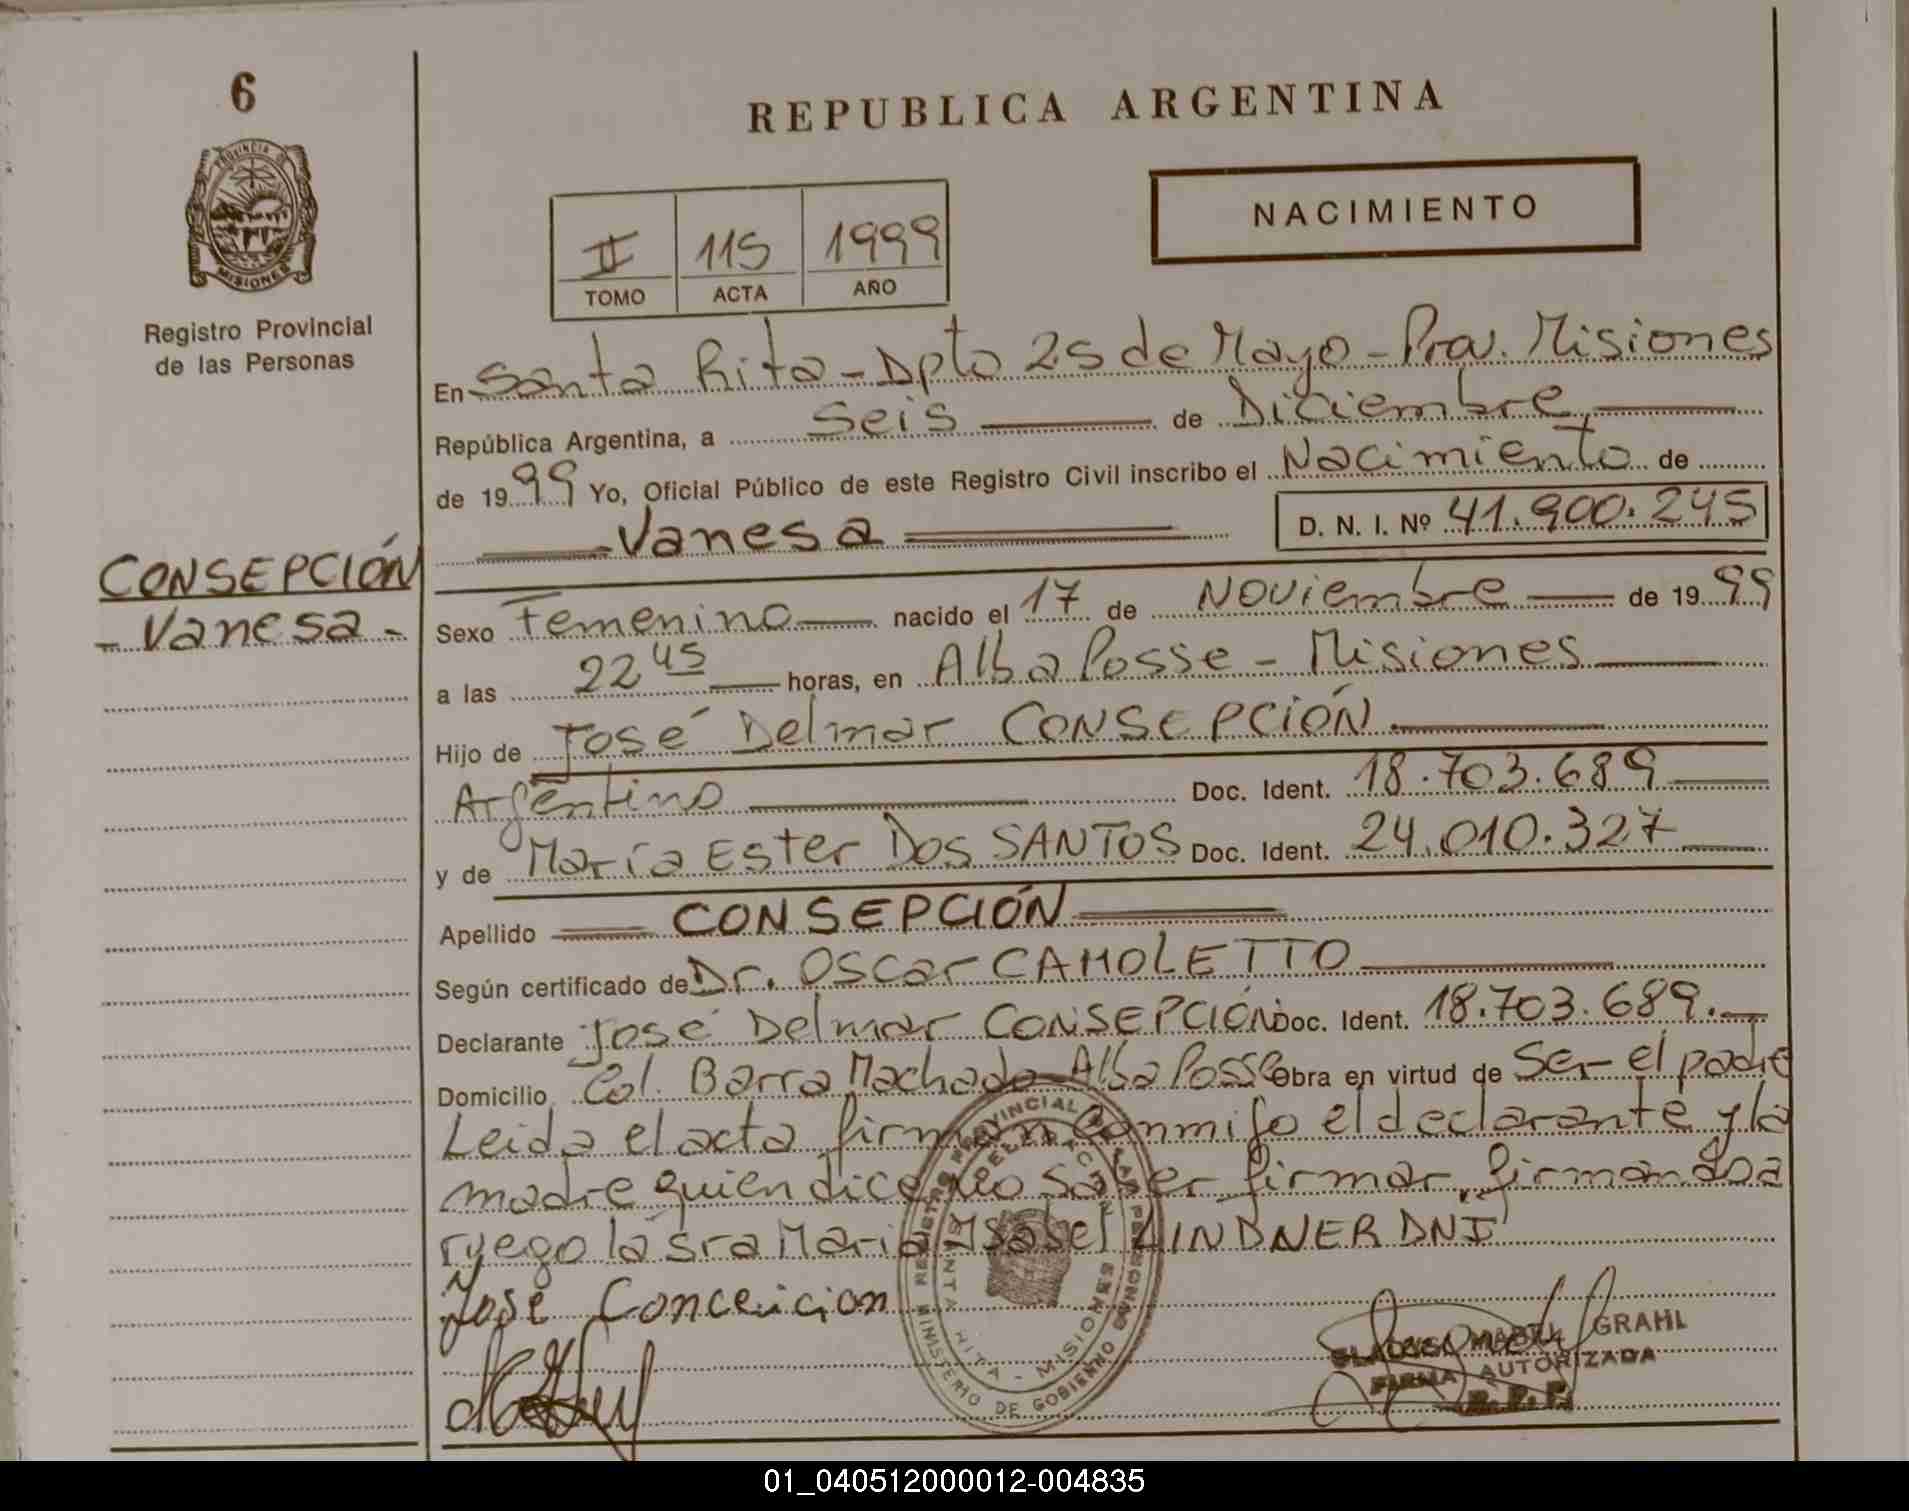 6
PROVINCIA DE
MISIONES
Registro Provincial
de las Personas
CONSEPCIÓN
- Vanesa -
REPUBLICA ARGENTINA
II 115 1999
TOMO ACTA AÑO
NACIMIENTO
En Santa Rita - Dpto 25 de Mayo - Prov. Misiones
República Argentina, a Seis de Diciembre
de 1999 Yo, Oficial Público de este Registro Civil inscribo el Nacimiento de
Vanesa D. N. I. Nº 41.900.245
Sexo Femenino nacido el 17 de Noviembre de 1999
a las 22 45 horas, en Alba Posse - Misiones
Hijo de José Delmar CONSEPCIÓN
Argentino Doc. Ident. 18.703.689
y de María Ester DOS SANTOS Doc. Ident. 24.010.327
Apellido CONSEPCIÓN
Según certificado de Dr. Oscar CAMOLETTO
Declarante José Delmar CONSEPCIÓN Doc. Ident. 18.703.689.
Domicilio Col. Barra Machado Alba Posse Obra en virtud de Ser el padre
Leida el acta firman conmigo el declarante y la
madre quien dice no saber firmar, firmando a
ruego la sra Maria Isabel LINDNER DNI
José Conceicion
GRAHL
FIRMA AUTORIZADA
R. P. P.
REGISTRO PROVINCIAL DE LAS PERSONAS
MINISTERIO DE GOBIERNO
SANTA RITA - MISIONES
01_040512000012-004835